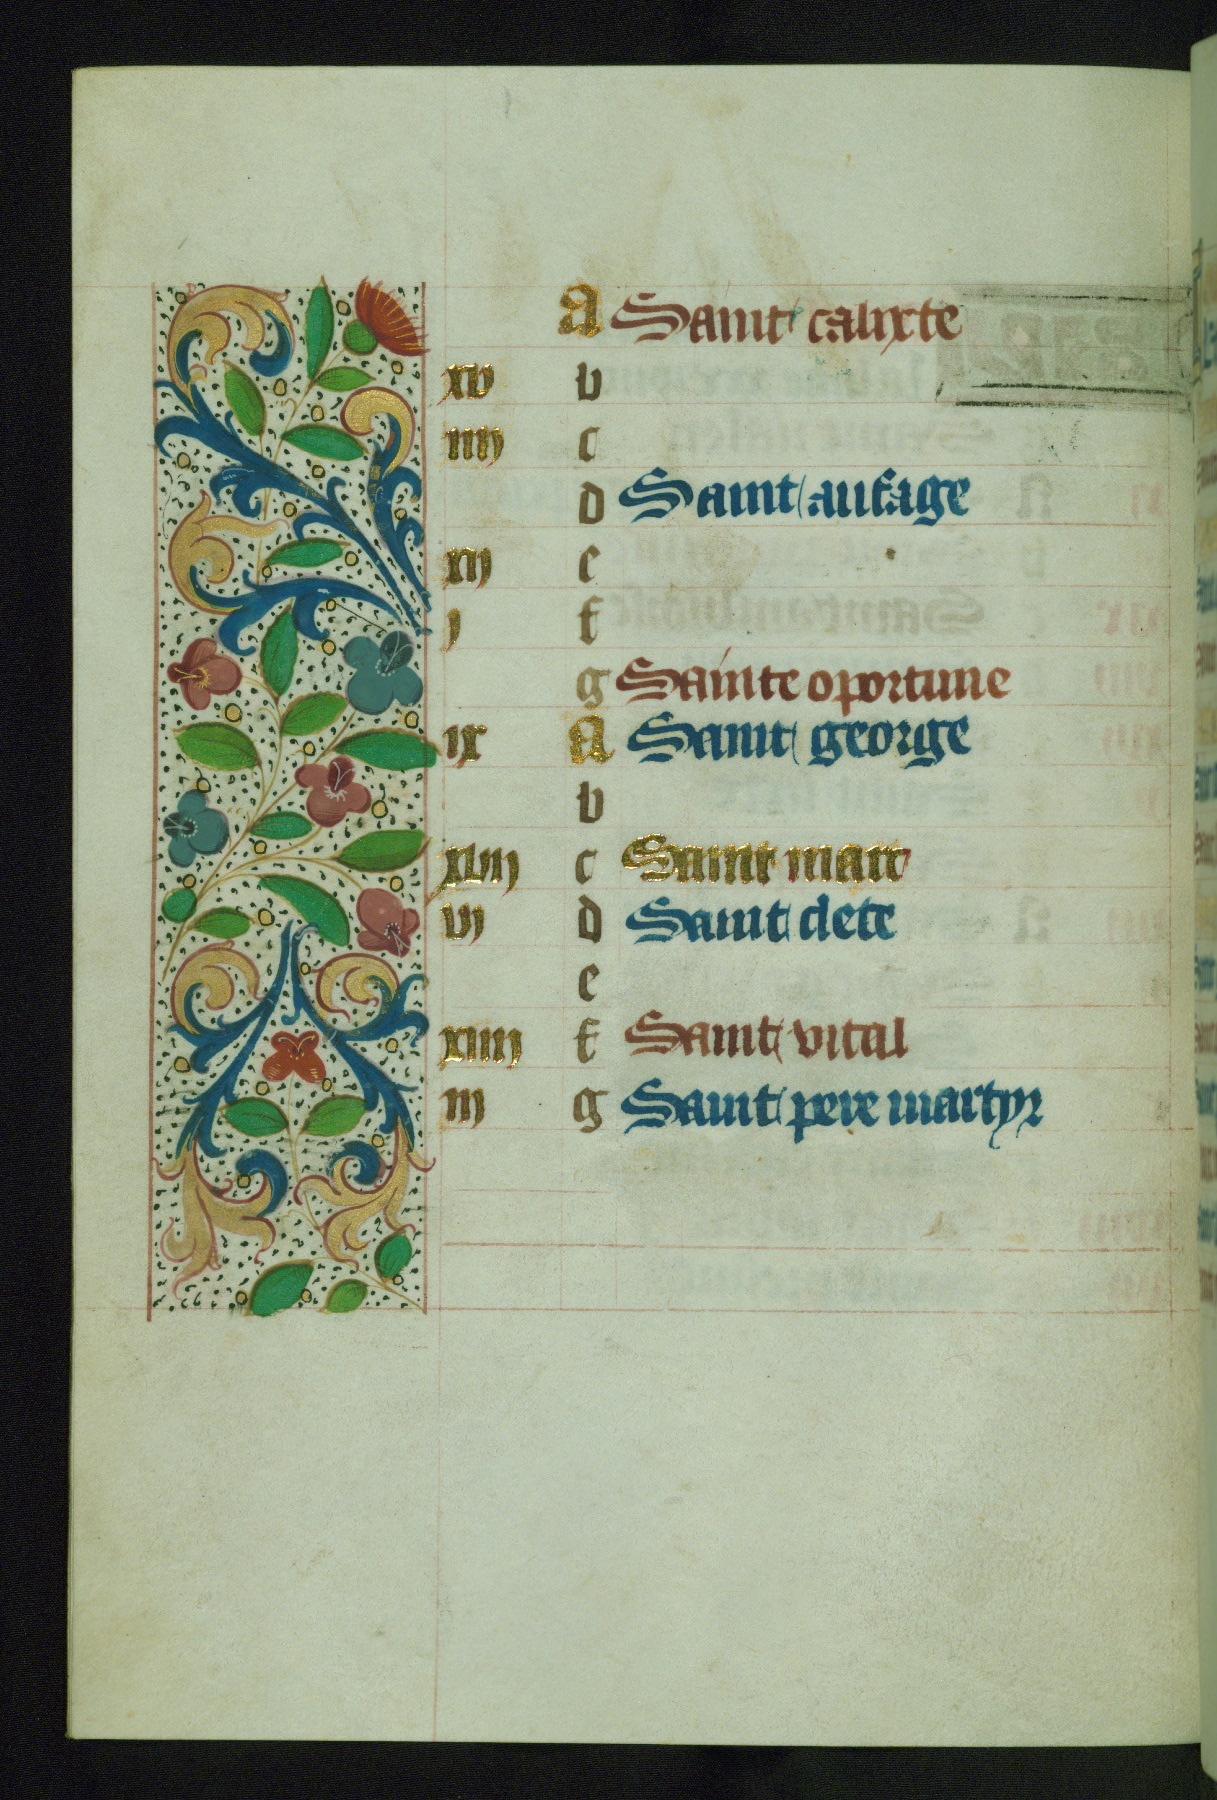 A Saint calixte
xv b
iiii c
d Saint aufage
xii e
i f
g Sainte oportune
ix A Saint george
b
xvii c Saint marc
vi d Saint clete
e
xiiii f Saint vital
iii g Saint pere martyr